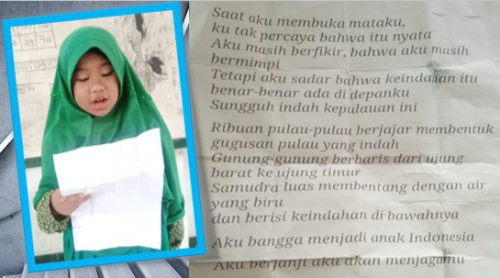 Saat aku membuka mataku,
ku tak percaya bahwa itu nyata
Aku masih berfikir, bahwa aku masih
bermimpi
Tetapi aku sadar bahwa keindahan itu
benar-benar ada di depanku
Sungguh indah kepulauan ini
Ribuan pulau-pulau berjajar membentuk
gugusan pulau yang indah
Gunung-gunung berbaris dari ujung
barat ke ujung timur
Samudra luas membentang dengan air
yang biru
dan berisi keindahan di bawahnya
Aku bangga menjadi anak Indonesia
Aku berjanji aku akan menjagamu